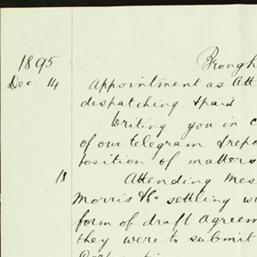 1895 Brough
Dec 14 Appointment as Att
despatching & paid
Writing you in c
of our telegram & repo
position of matters
18 Attending Mes
Morris & Co settling w
form of draft agreem
they were to submit